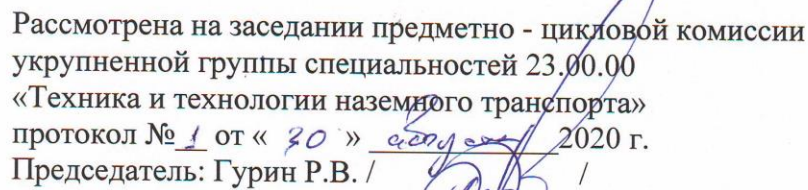 Рассмотрена на заседании предметно - цикловой комиссии
укрупненной группы специальностей 23.00.00
«Техника и технологии наземного транспорта»
протокол № 1 от « 30 » августа 2020 г.
Председатель: Гурин Р.В. / /